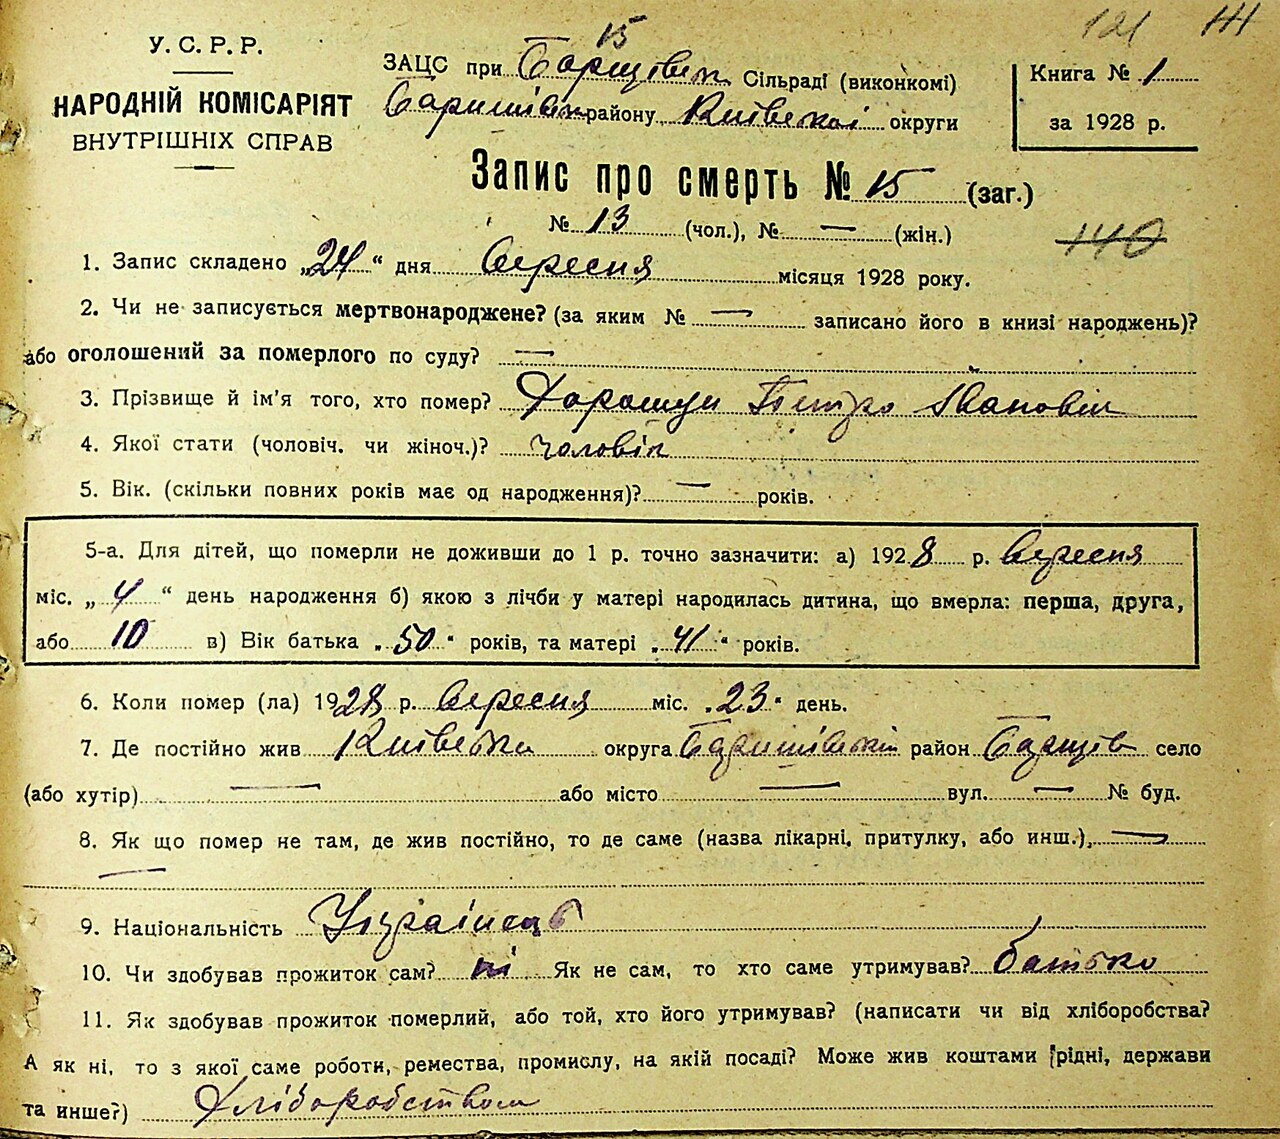 121
У. С. Р. Р.
НАРОДНІЙ КОМІСАРІЯТ
ВНУТРІШНІХ СПРАВ
15
ЗАЦС при Борщівськ Сільраді (виконкомі)
Баришівськ району Київської округи
Книга № 1
за 1928 р.
Запис про смерть № 15 (заг.)
№ 13 (чол.), № — (жін.)
140
1. Запис складено „24“ дня вересня місяця 1928 року.
2. Чи не записується мертвонароджене? (за яким № — записано його в книзі народжень)?
або оголошений за померлого по суду? —
3. Прізвище й ім'я того, хто помер? Петро Іванович
4. Якої стати (чоловіч. чи жіноч.)? чоловік
5. Вік. (скільки повних років має од народження)? — років.
5-а. Для дітей, що померли не доживши до 1 р. точно зазначити: а) 1928 р. вересня
міс. „4“ день народження б) якою з лічби у матері народилась дитина, що вмерла: перша, друга,
або 10 в) Вік батька „50“ років, та матері „41“ років.
6. Коли помер (ла) 1928 р. вересня міс. „23“ день.
7. Де постійно жив Київська округа Баришівський район Борщів село
(або хутір) — або місто — вул. — № буд.
8. Як що помер не там, де жив постійно, то де саме (назва лікарні, притулку, або инш.), —
—
9. Національність Українець
10. Чи здобував прожиток сам? ні Як не сам, то хто саме утримував? батько
11. Як здобував прожиток померлий, або той, хто його утримував? (написати чи від хліборобства?
А як ні, то з якої саме роботи, ремества, промислу, на якій посаді? Може жив коштами рідні, держави
та инше?) Хліборобством